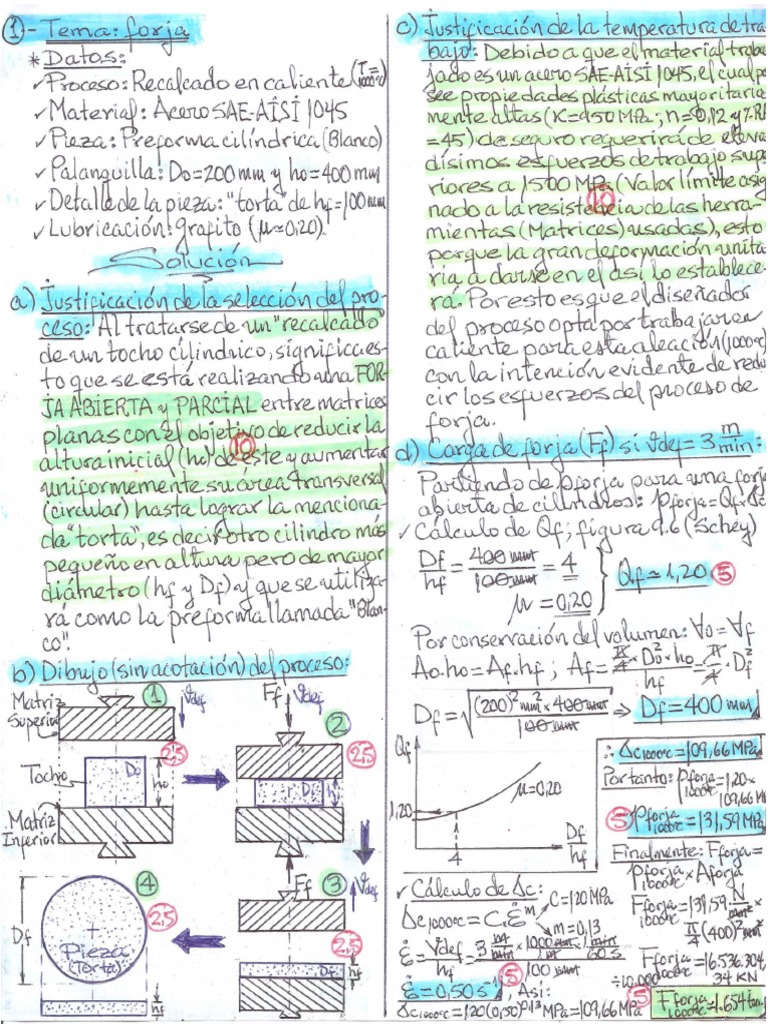 1 - Tema: forja
* Datos:
✓ Proceso: Recalcado en caliente (T = 1000°C)
✓ Material: Acero SAE-AISI 1045
✓ Pieza: Preforma cilíndrica (Blanco)
✓ Palanquilla: Do = 200 mm y ho = 400 mm
✓ Detalle de la pieza: "torta" de hf = 100 mm
✓ Lubricación: grafito (μ ≃ 0,20)
Solución
a) Justificación de la selección del pro-
ceso: Al tratarse de un "recalcado"
de un tocho cilíndrico, significa es-
to que se está realizando una FOR-
JA ABIERTA y PARCIAL entre matrices
planas con el objetivo de reducir la
10
altura inicial (ho) de este y aumentar
uniformemente su área transversal
(circular) hasta lograr la menciona-
da "torta", es decir otro cilindro más
pequeño en altura pero de mayor
diámetro (hf y Df) y que se utiliza-
rá como la preforma llamada "Blan-
co".
b) Dibujo (sin acotación) del proceso:
Matriz
Superior
1
Vdef
2,5
Tocho
Do
ho
Matriz
Inferior
Ff
Vdef
2
2,5
D
4
2,5
Df
Pieza
(Torta)
hf
Ff
3
Vdef
2,5
Df
hf
c) Justificación de la temperatura de tra
bajo: Debido a que el material traba
jado es un acero SAE-AISI 1045, el cual po
see propiedades plásticas mayoritaria
mente altas (K = 950 MPa; n = 0,12 y %R
= 45) de seguro requerirá de eleva
dísimos esfuerzos de trabajo sup
riores a 1500 MPa (Valor límite asig
10
nado a la resistencia de las herra
mientas (Matrices) usadas), esto
porque la gran deformación unita
ria a darse en él así lo establece
rá. Por esto es que el diseñador
del proceso opta por trabajar en
caliente para esta aleación (1000°C)
con la intención evidente de redu
cir los esfuerzos del proceso de
forja.
d) Carga de forja (Ff) si Vdef = 3 m/min:
Partiendo de pforja para una forj
abierta de cilindros: pforja = Qf·σc
✓ Cálculo de Qf; figura 9.6 (Schey)
Df/hf = 400 mm/100 mm = 4
μ = 0,20
Qf ≃ 1,20
5
Por conservación del volumen: ∀o = ∀f
Ao.ho = Af.hf ; Af = π/4 · Do² · ho / hf = π/4 · Df²
Df = √((200)² mm² × 400 mm / 100 mm) ⇒ Df = 400 mm
Qf
1,20
μ = 0,20
4
Df/hf
✓ Cálculo de σc:
σc1000°C = C.ε̇^m
C = 120 MPa
m = 0,13
ε̇ = Vdef/hf = 3 m/min × 1000 mm/m × 1 min/60 s / 100 mm
ε̇ = 0,50 s⁻¹
5
, Así:
σc1000°C = 120 (0,50)^0,13 MPa = 109,66 MPa
∴ σc1000°C = 109,66 MPa
Por tanto: pforja 1000°C = 1,20 ×
109,66 M
5
pforja 1000°C = 131,59 MPa
Finalmente: Fforja =
pforja 1000°C × Aforja
Fforja 1000°C = 131,59 N/mm² ×
π/4 (400)² mm²
Fforja 1000°C = 16.536.304,
÷10.000
34 KN
5
Fforja 1000°C = 1.654 ton